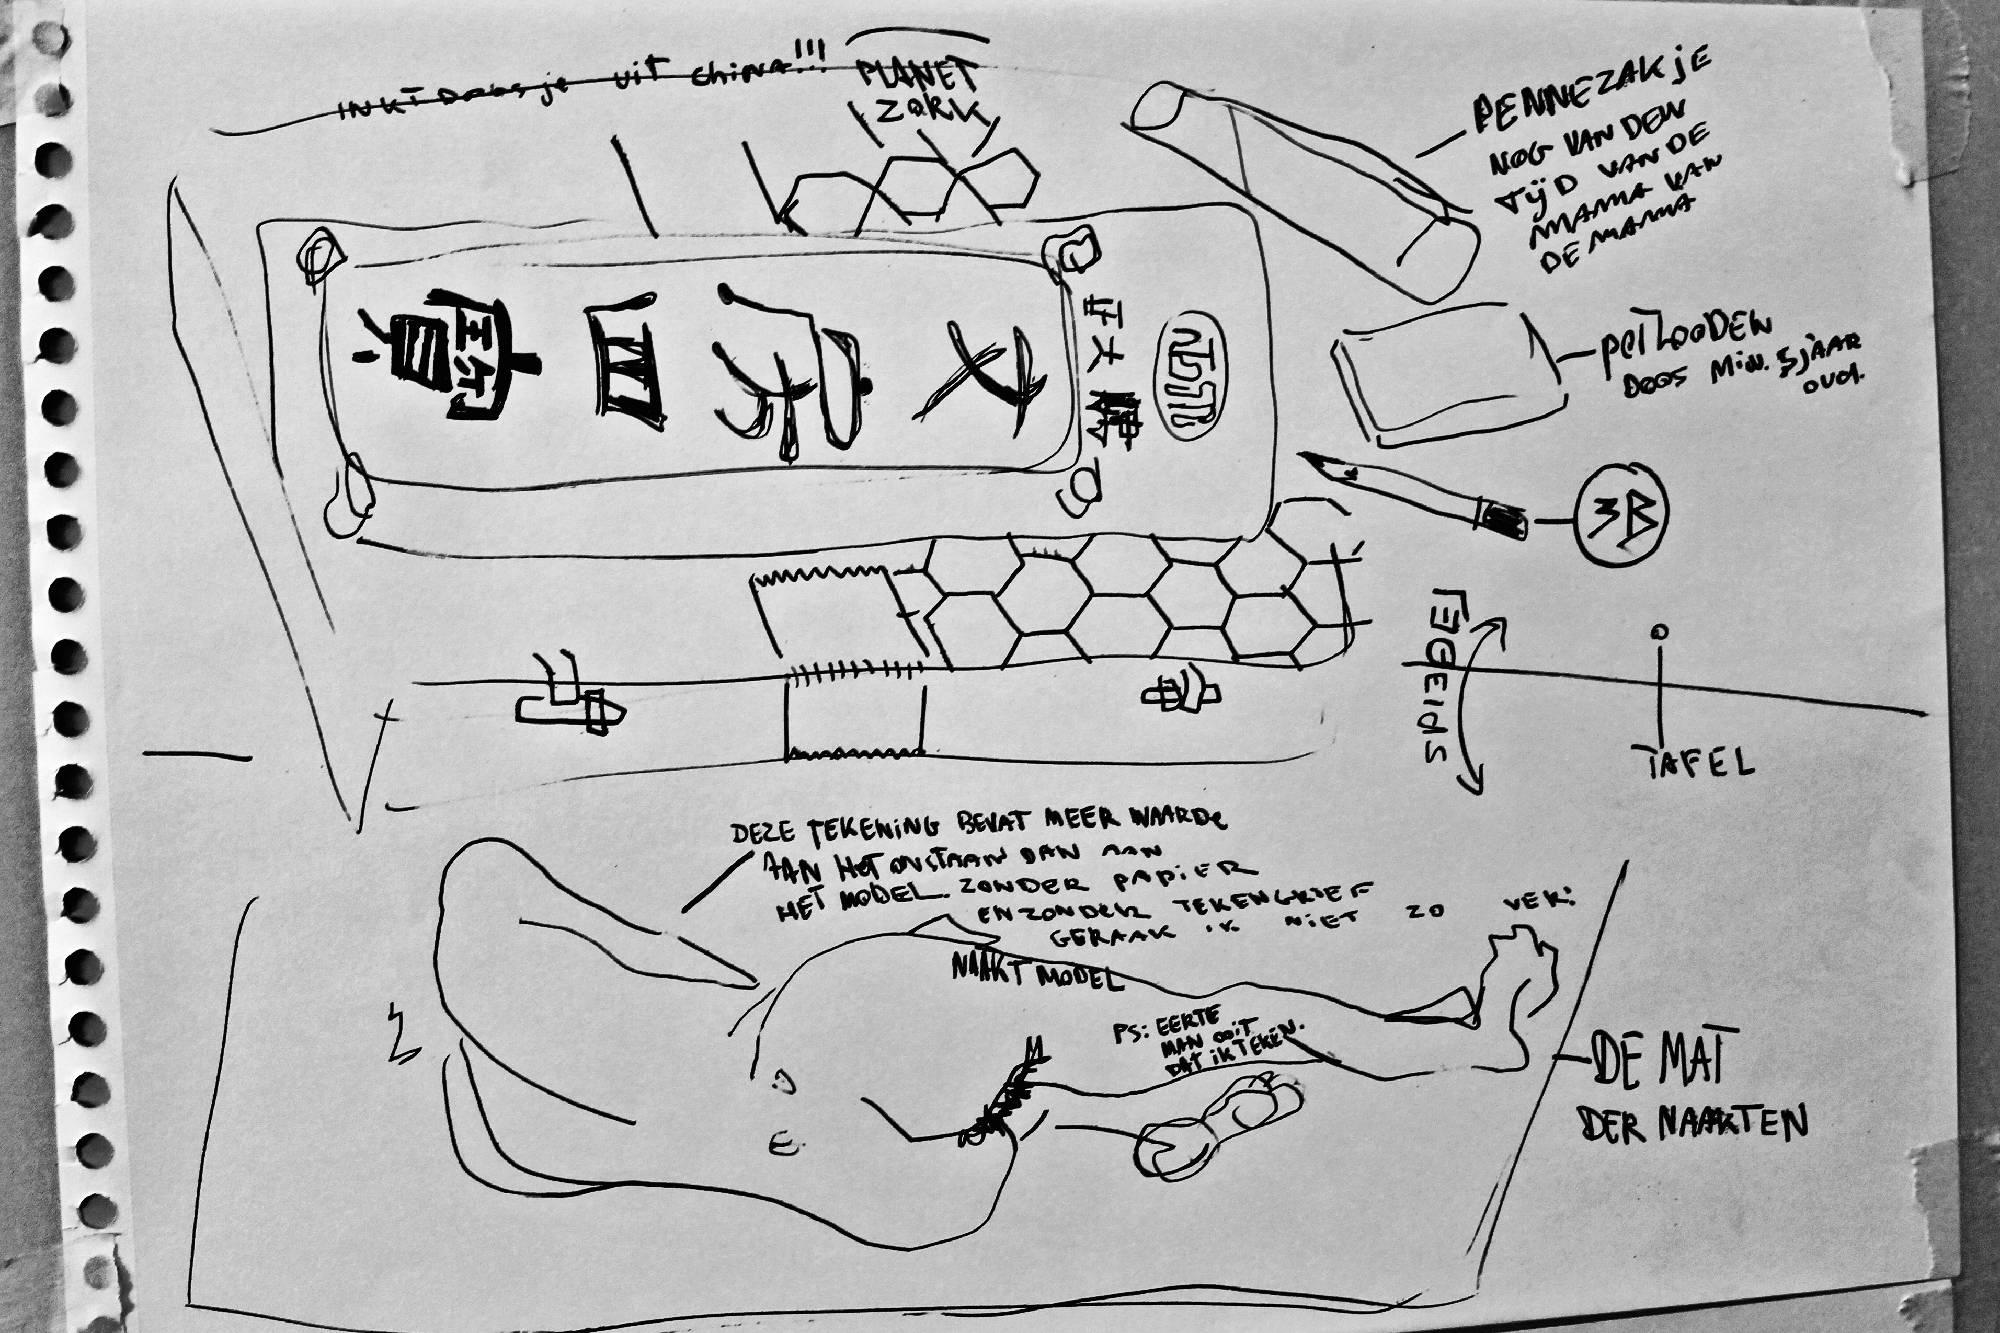 INKTDOOSje UIT CHINA!!!
PLANET
ZORK
PENNEZAKJE
NOG VAN DEN
TIJD VAN DE
MAMA VAN
DE MAMA
POTLOODEN
DOOS MIN. 5 JAAR
OUD.
3B
TAFEL
DEZE TEKENING BEVAT MEER WAARDE
AAN HET ONSTAAN DAN AAN
HET MODEL. ZONDER PAPIER
EN ZONDER TEKENGRIEF
GERAAK IK NIET ZO VER:
NAAKT MODEL
PS: EERTE
MAN OOIT
DAT IK TEKEN.
DE MAT
DER NAAKTEN